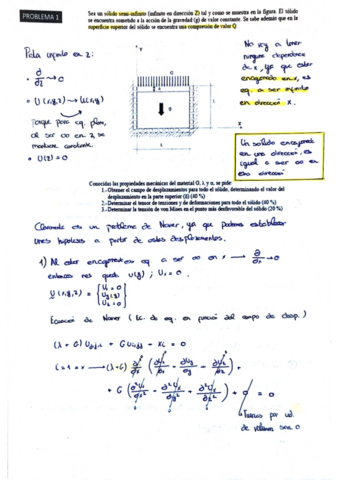 PROBLEMA 1
Sea un sólido semi-infinito (infinito en dirección Z) tal y como se muestra en la figura. El sólido
se encuentra sometido a la acción de la gravedad (g) de valor constante. Se sabe además que en la
superficie superior del sólido se encuentra una compresión de valor Q.
Pieza infinita en z:
∂/∂z → 0
U(x,y,z) → U(x,y)
porque para eq. plana,
al ser ∞ en z, se
mantiene constante.
U(z) = 0
Y
g
L
X
L
No voy a tener
ninguna dependencia
de x, ya que estar
encajonado en x, es
eq. a ser infinito
en dirección x.
Un sólido encajonado
en una dirección, es
igual a ser ∞ en
esa dirección
Conocidas las propiedades mecánicas del material G, λ y α, se pide:
1.- Obtener el campo de desplazamientos para todo el sólido, determinando el valor del
desplazamiento en la parte superior (δ) (40 %)
2.- Determinar el tensor de tensiones y de deformaciones para todo el sólido (40 %)
3.- Determinar la tensión de von Mises en el punto más desfavorable del sólido (20 %)
Claramente es un problema de Navier, ya que podemos establecer
unas hipótesis a partir de estos desplazamientos.
1) Al estar encajonado es eq. a ser ∞ en x → ∂/∂x → 0
entonces nos queda U(y) ; Ux = 0.
U(x,y,z) = { Ux = 0
Uy(y)
Uz = 0 }
Ecuación de Navier (Ec. de eq. en función del campo de desp.)
(λ + G) Uj,ji + G Ui,jj + Xi = 0
i = 1 = x → (λ+G) ∂/∂x (∂Ux/∂x + ∂Uy/∂y + ∂Uz/∂z) +
+ G (∂²Ux/∂x² + ∂²Ux/∂y² + ∂²Ux/∂z²) + 0 = 0
Fuerzas por ud.
de volumen son 0